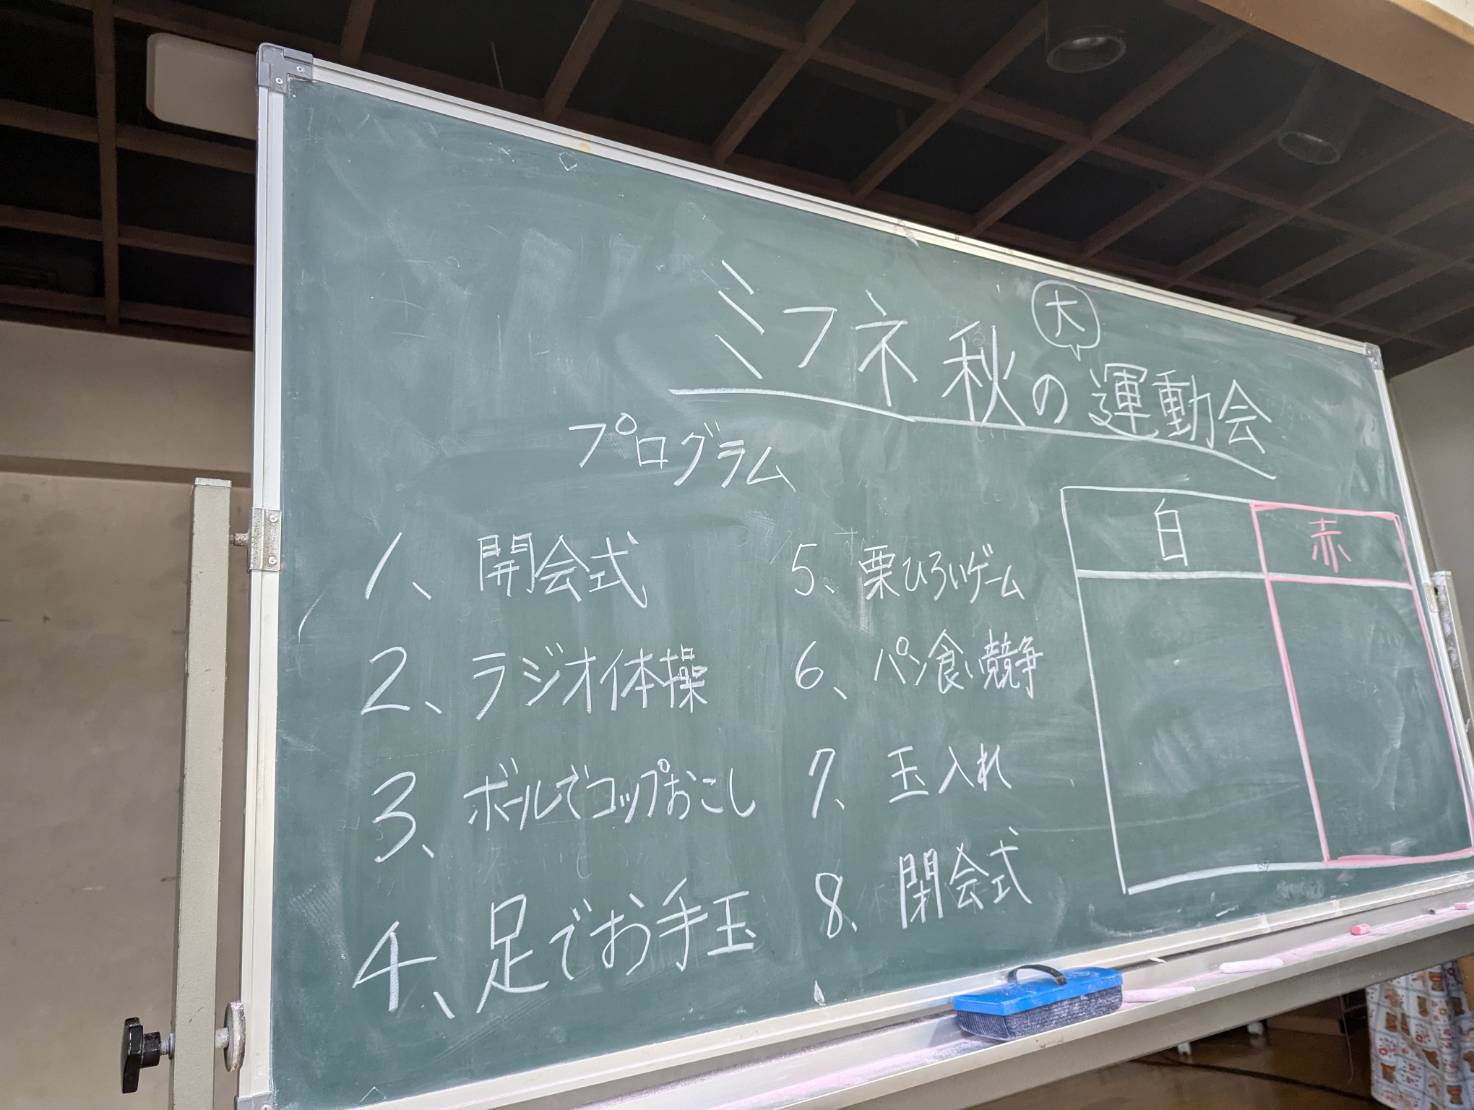 ミフネ 秋の大運動会
プログラム
1、開会式
2、ラジオ体操
3、ボールでコップおこし
4、足でお手玉
5、栗ひろいゲーム
6、パン食い競争
7、玉入れ
8、閉会式
白 赤